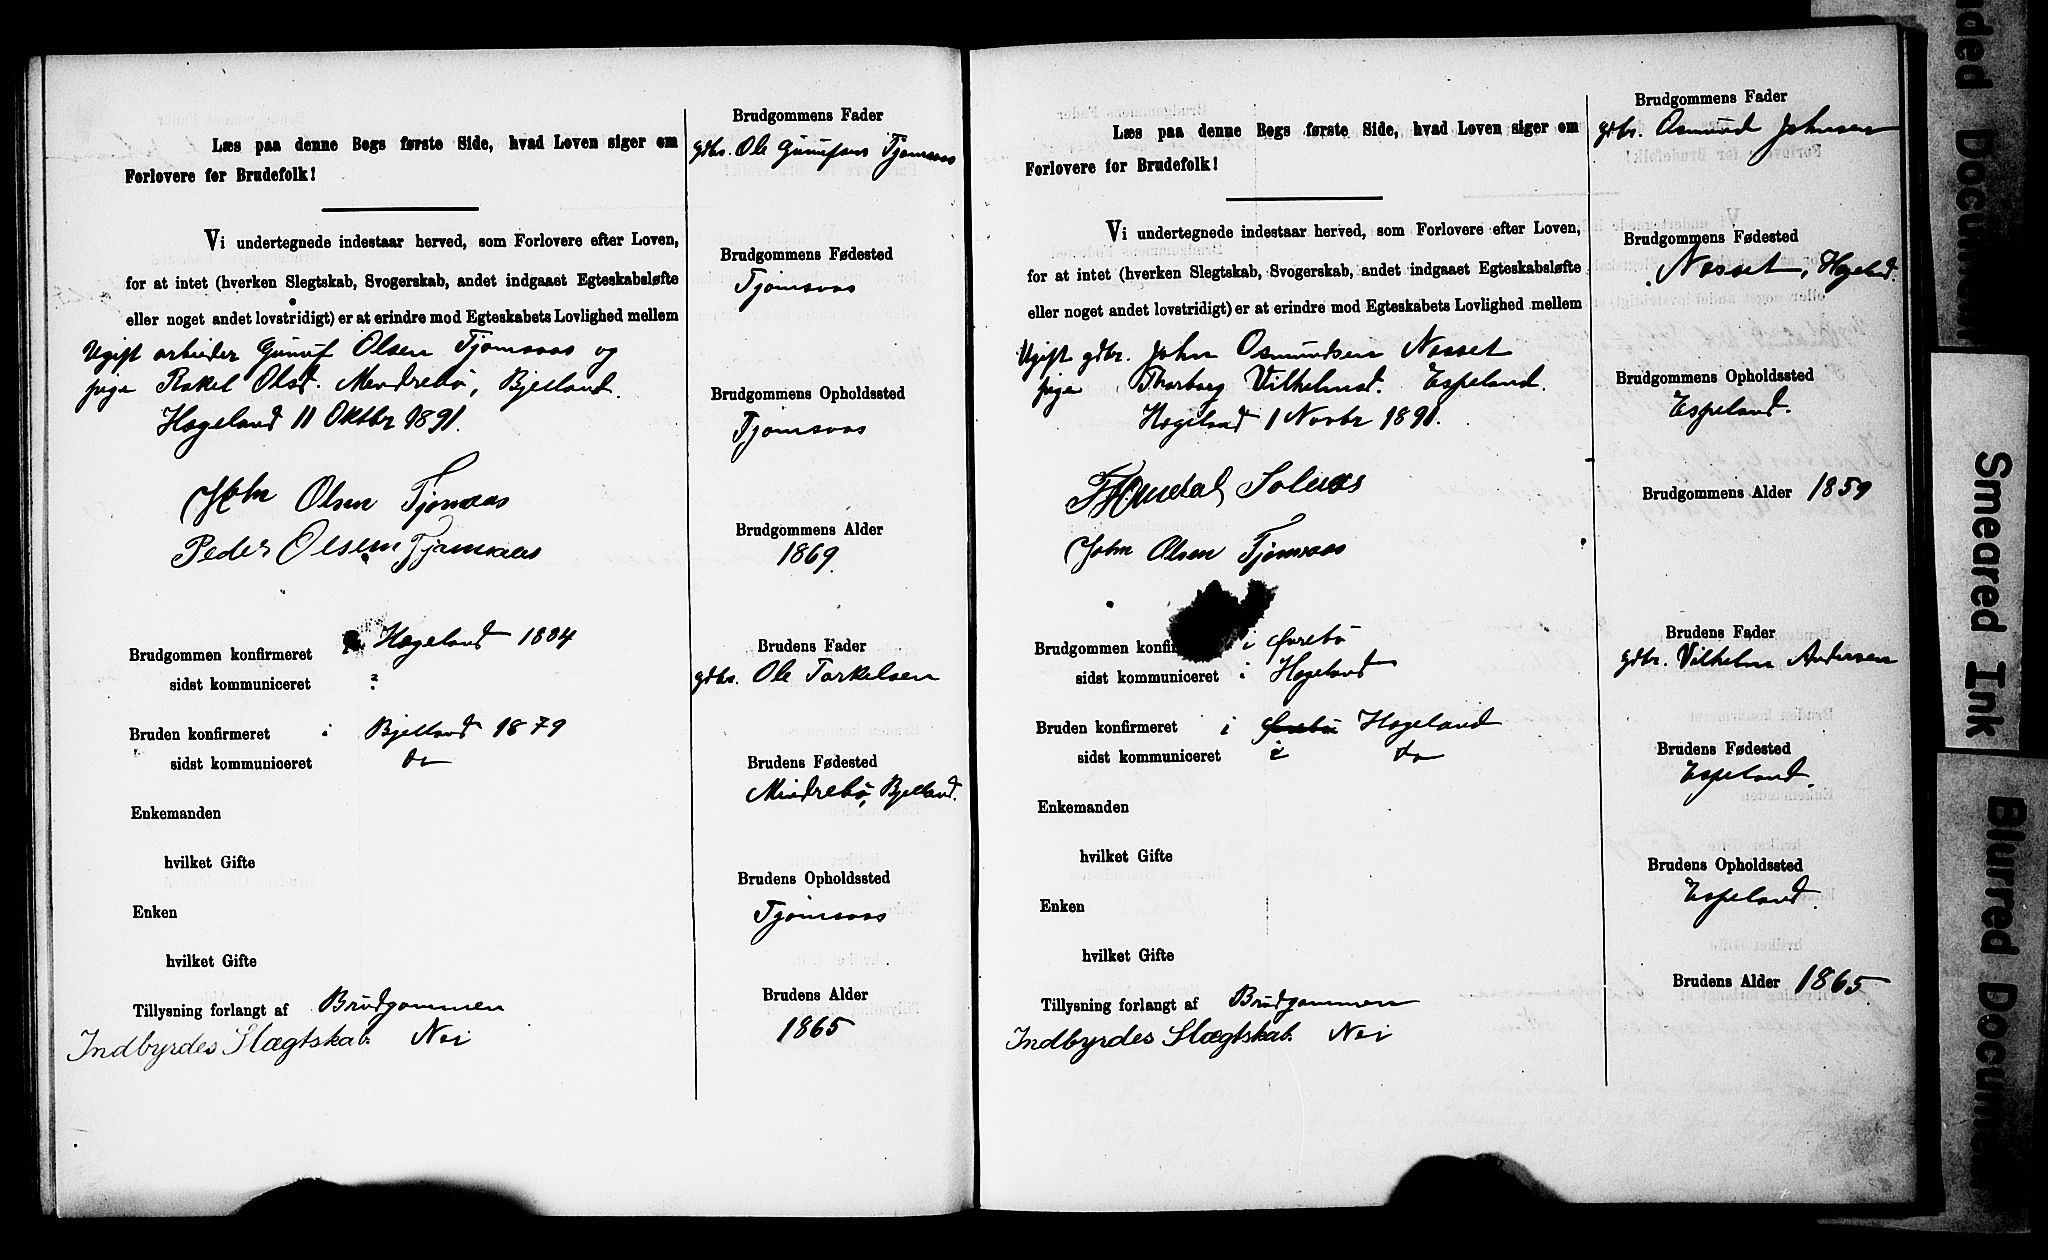 Læs paa denne Bogs første Side, hvad Loven siger om
Forlovere for Brudefolk!
Vi undertegnede indestaar herved, som Forlovere efter Loven,
for at intet (hverken Slegtskab, Svogerskab, andet indgaaet Egteskabsløfte
eller noget andet lovstridigt) er at erindre mod Egteskabets Lovlighed mellem
Ugift arbeider Gunuf Olsen Tjomsaas og
pige Rakel Olsd. Mindrebø, Bjelland.
Hægeland 11 Oktbr 1891.
John Olsen Tjomsaas
Peder Olsen Tjomsaas
Brudgommen konfirmeret i Hægeland 1884
sidst kommuniceret
Bruden konfirmeret i Bjelland 1879
sidst kommuniceret do
Enkemanden
hvilket Gifte
Enken
hvilket Gifte
Tillysning forlangt af Brudgommen
Indbyrdes Slægtskab. Nei
Brudgommens Fader
gdbr. Ole Gunufsen Tjomsaas
Brudgommens Fødested
Tjomsaas
Brudgommens Opholdssted
Tjomsaas
Brudgommens Alder
1869.
Brudens Fader
gdbr. Ole Torkelsen
Brudens Fødested
Mindrebø, Bjelland.
Brudens Opholdssted
Tjomsaas
Brudens Alder
1865
Læs paa denne Bogs første Side, hvad Loven siger om
Forlovere for Brudefolk!
Vi undertegnede indestaar herved, som Forlovere efter Loven,
for at intet (hverken Slegtskab, Svogerskab, andet indgaaet Egteskabsløfte
eller noget andet lovstridigt) er at erindre mod Egteskabets Lovlighed mellem
Ugift gdbr. John Osmundsen Nosset
pige Thorborg Vilhelmsd. Espeland.
Hægeland 1 Novbr 1891.
John Olsen Tjomsaas
Brudgommen konfi i Øvrebø
sidst kommuniceret i Hægeland
Bruden konfirmeret i Øvrebø Hægeland
sidst kommuniceret i do
Enkemanden
hvilket Gifte
Enken
hvilket Gifte
Tillysning forlangt af Brudgommen
Indbyrdes Slægtskab. Nei
Brudgommens Fader
gdbr. Osmund Johnsen
Brudgommens Fødested
Nosset, Hægeland.
Brudgommens Opholdssted
Espeland.
Brudgommens Alder 1859
Brudens Fader
gdbr. Vilhelm Andersen
Brudens Fødested
Espeland.
Brudens Opholdssted
Espeland.
Brudens Alder 1865
Smeared Ink
Blurred Docum